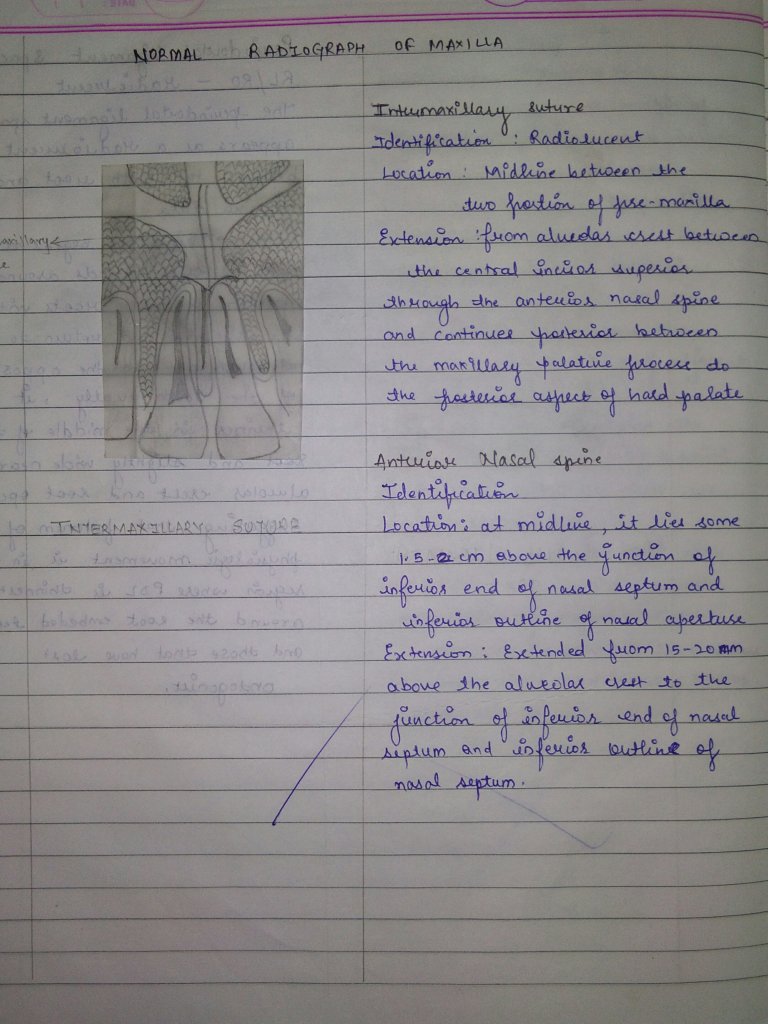 NORMAL RADIOGRAPH OF MAXILLA
Intermaxillary suture
Identification : Radiolucent
Location : Midline between the
two portion of pre-maxilla
Extension : from alveolar crest between
the central incisor superior
through the anterior nasal spine
and continues posterior between
the maxillary palatine process do
the posterior aspect of hard palate
INTERMAXILLARY SUTURE
Anterior Nasal spine
Identification
Location : at midline, it lies some
1.5-2 cm above the junction of
inferior end of nasal septum and
inferior outline of nasal aperture
Extension : Extended from 15-20 mm
above the alveolar crest to the
junction of inferior end of nasal
septum and inferior outline of
nasal septum.